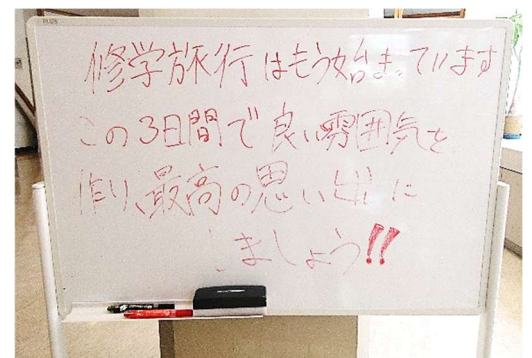 修学旅行はもう始まっています
この3日間で良い雰囲気を
作り、最高の思い出に
しましょう!!